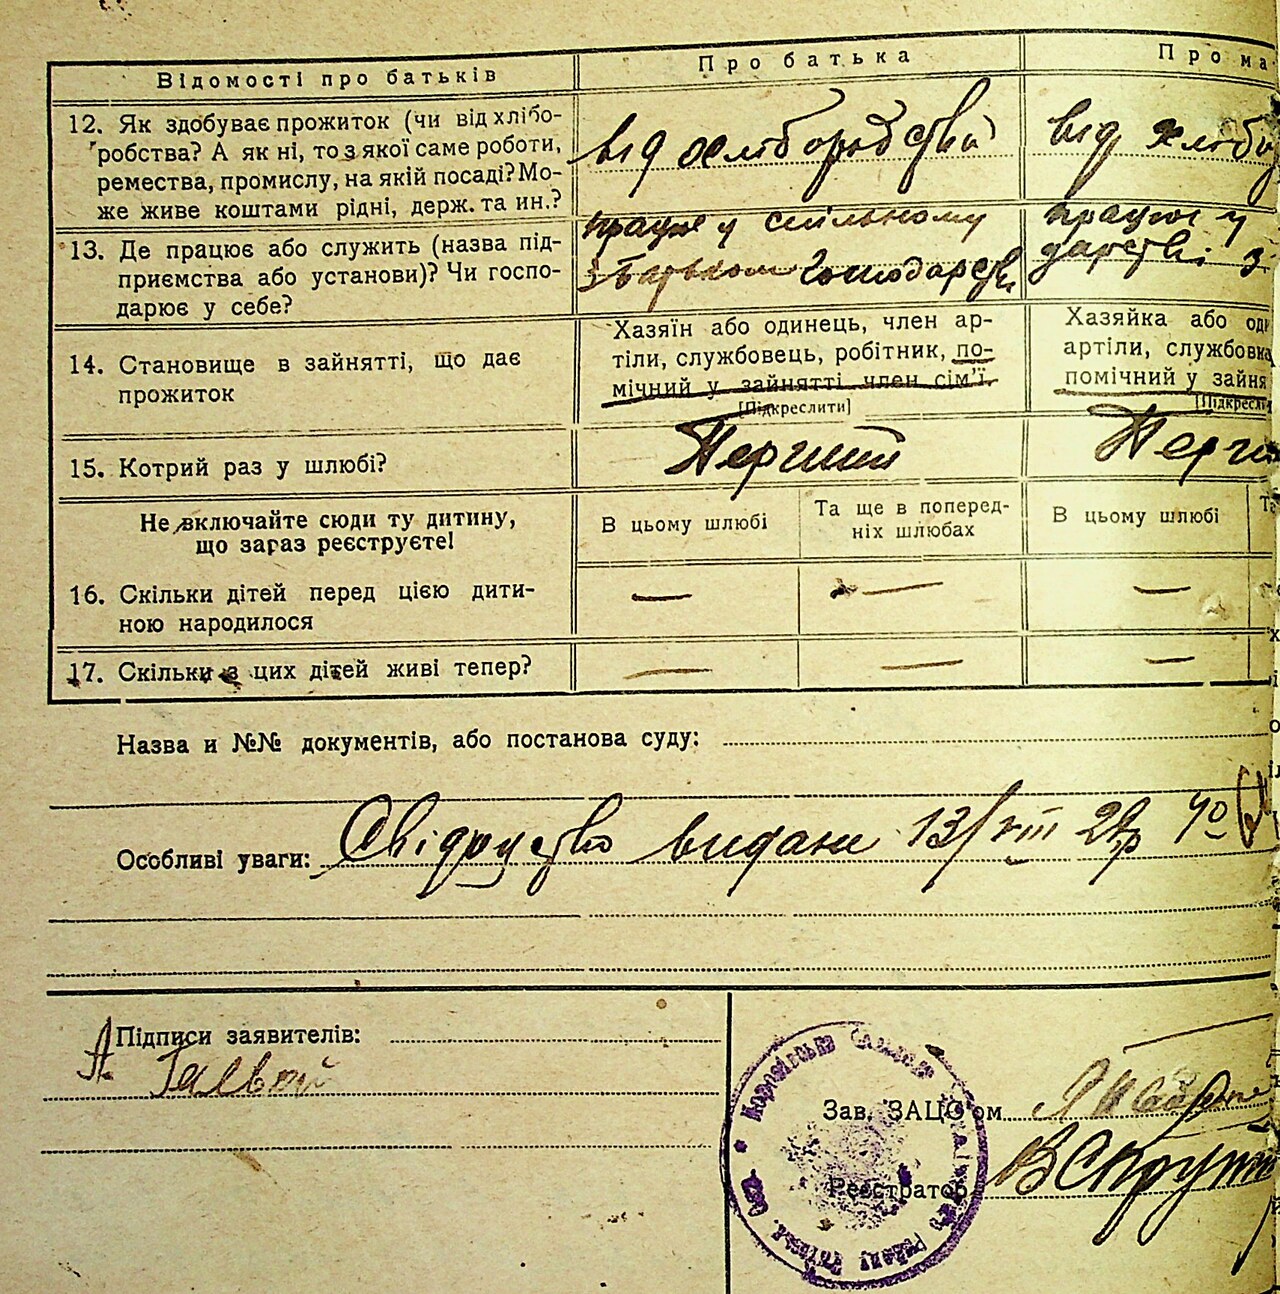 Відомості про батьків
Про батька
Про ма
12. Як здобуває прожиток (чи від хлібо-
робства? А як ні, то з якої саме роботи,
ремества, промислу, на якій посаді? Мо-
же живе коштами рідні, держ. та ин.?
від хліборобства
від хлібо
13. Де працює або служить (назва під-
приємства або установи)? Чи госпо-
дарює у себе?
працює у спільному
з батьком господарстві
працює у
дарстві з
14. Становище в зайнятті, що дає
прожиток
Хазяїн або одинець, член ар-
тіли, службовець, робітник, по-
мічний у зайнятті член сім'ї.
[Підкреслити]
Хазяйка або оди
артіли, службовка
помічний у зайня
[Підкресли
15. Котрий раз у шлюбі?
Перший
Перши
Не включайте сюди ту дитину,
що зараз реєструєте!
В цьому шлюбі
Та ще в поперед-
ніх шлюбах
В цьому шлюбі
Та
16. Скільки дітей перед цією дити-
ною народилося
— — —
17. Скільки з цих дітей живі тепер?
— — —
Назва и №№ документів, або постанова суду:
Особливі уваги: Свідоцтво видане 13/VIII 29р
Підписи заявителів:
А.
Зав. ЗАЦС'ом
Реєстратор